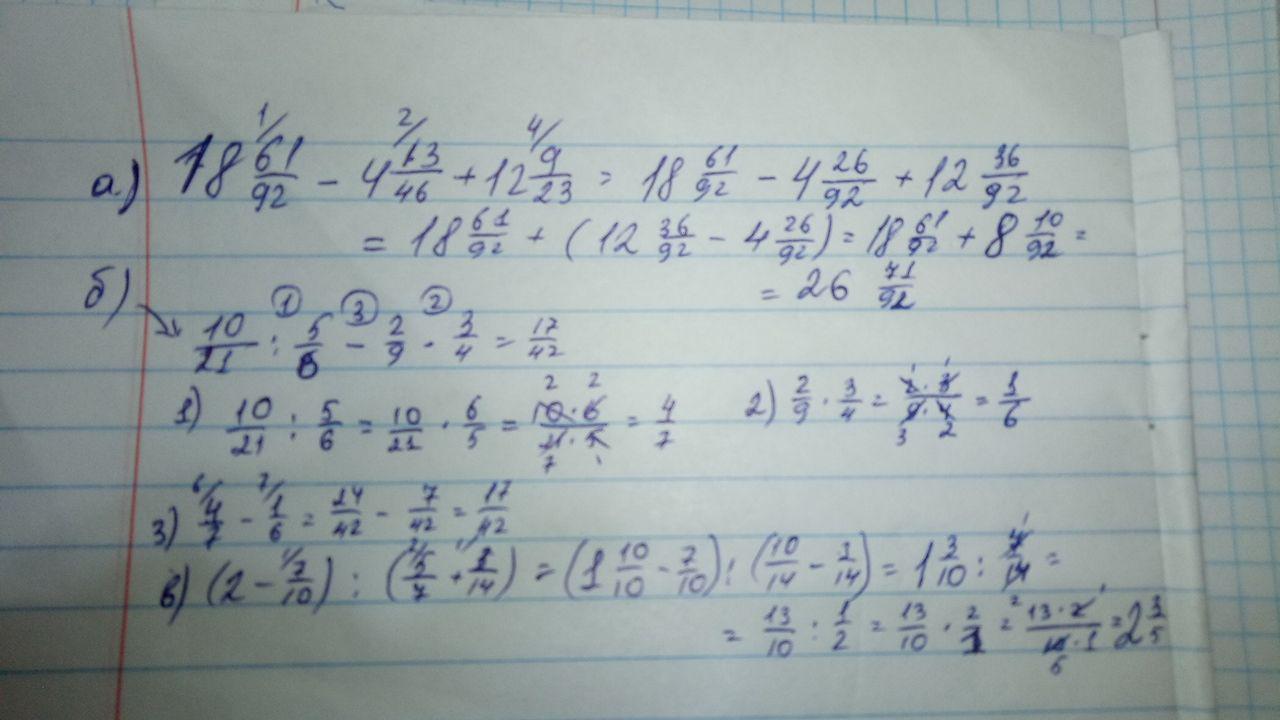 а) 18 61/92 - 4 13/46 + 12 9/23 = 18 61/92 - 4 26/92 + 12 36/92
= 18 61/92 + (12 36/92 - 4 26/92) = 18 61/92 + 8 10/92 =
= 26 71/92
б)
10/21 : 5/6 - 2/9 · 3/4 = 17/42
1) 10/21 : 5/6 = 10/21 · 6/5 = 10·6/21·5 = 4/7 2) 2/9 · 3/4 = 2·3/9·4 = 1/6
3) 4/7 - 1/6 = 24/42 - 7/42 = 17/42
в) (2 - 7/10) : (5/7 + /14) = (1 10/10 - 7/10) : (10/14 - 3/14) = 1 3/10 : /14 =
= 13/10 : 1/2 = 13/10 · 2/1 = 13·2/10·1 = 2 3/5